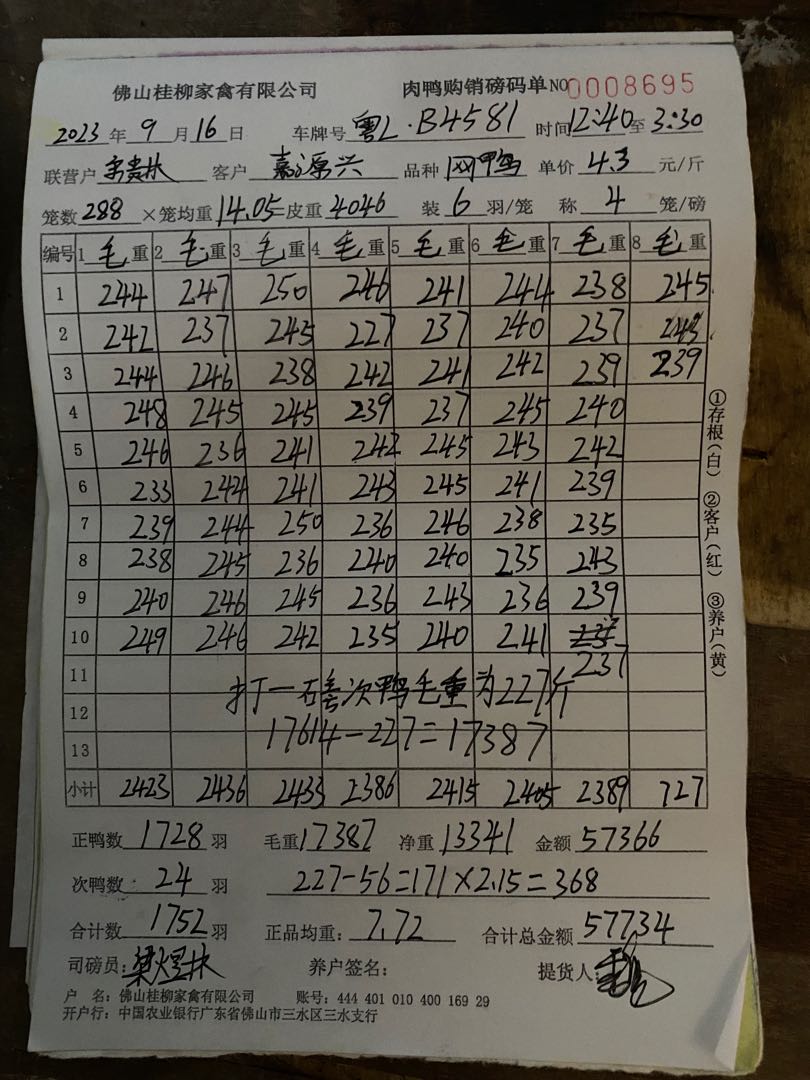 佛山桂柳家禽有限公司 肉鸭购销磅码单 NO 0008695
2023 年 9 月 16 日 车牌号 粤L·B4581 时间 12:40 至 3:30
联营户 客户 嘉源兴 品种 网鸭 单价 4.3 元/斤
笼数 288 ×笼均重 14.05 皮重 4046 装 6 羽/笼 称 4 笼/磅
编号 1 毛重 2 毛重 3 毛重 4 毛重 5 毛重 6 毛重 7 毛重 8 毛重
1 244 247 250 246 241 244 238 245
2 242 237 245 227 237 240 237 243
3 244 246 238 242 241 242 239 239
4 248 245 245 239 237 245 240
5 246 236 241 242 245 243 242
6 233 244 241 243 245 241 239
7 239 244 250 236 246 238 235
8 238 245 236 240 240 235 243
9 240 246 245 236 243 236 239
10 249 246 242 235 240 241
11 237
打一磅次鸭毛重为227斤
12
17614-227=17387
13
小计 2423 2436 2433 2386 2415 2405 2389 727
正鸭数 1728 羽 毛重 17387 净重 13341 金额 57366
次鸭数 24 羽 227-56=171×2.15=368
合计数 1752 羽 正品均重: 7.72 合计总金额 57734
司磅员: 梁煜林 养户签名: 提货人:
户 名: 佛山桂柳家禽有限公司 账号: 444 401 010 400 169 29
开户行: 中国农业银行广东省佛山市三水区三水支行
①存根(白) ②客户(红) ③养户(黄)